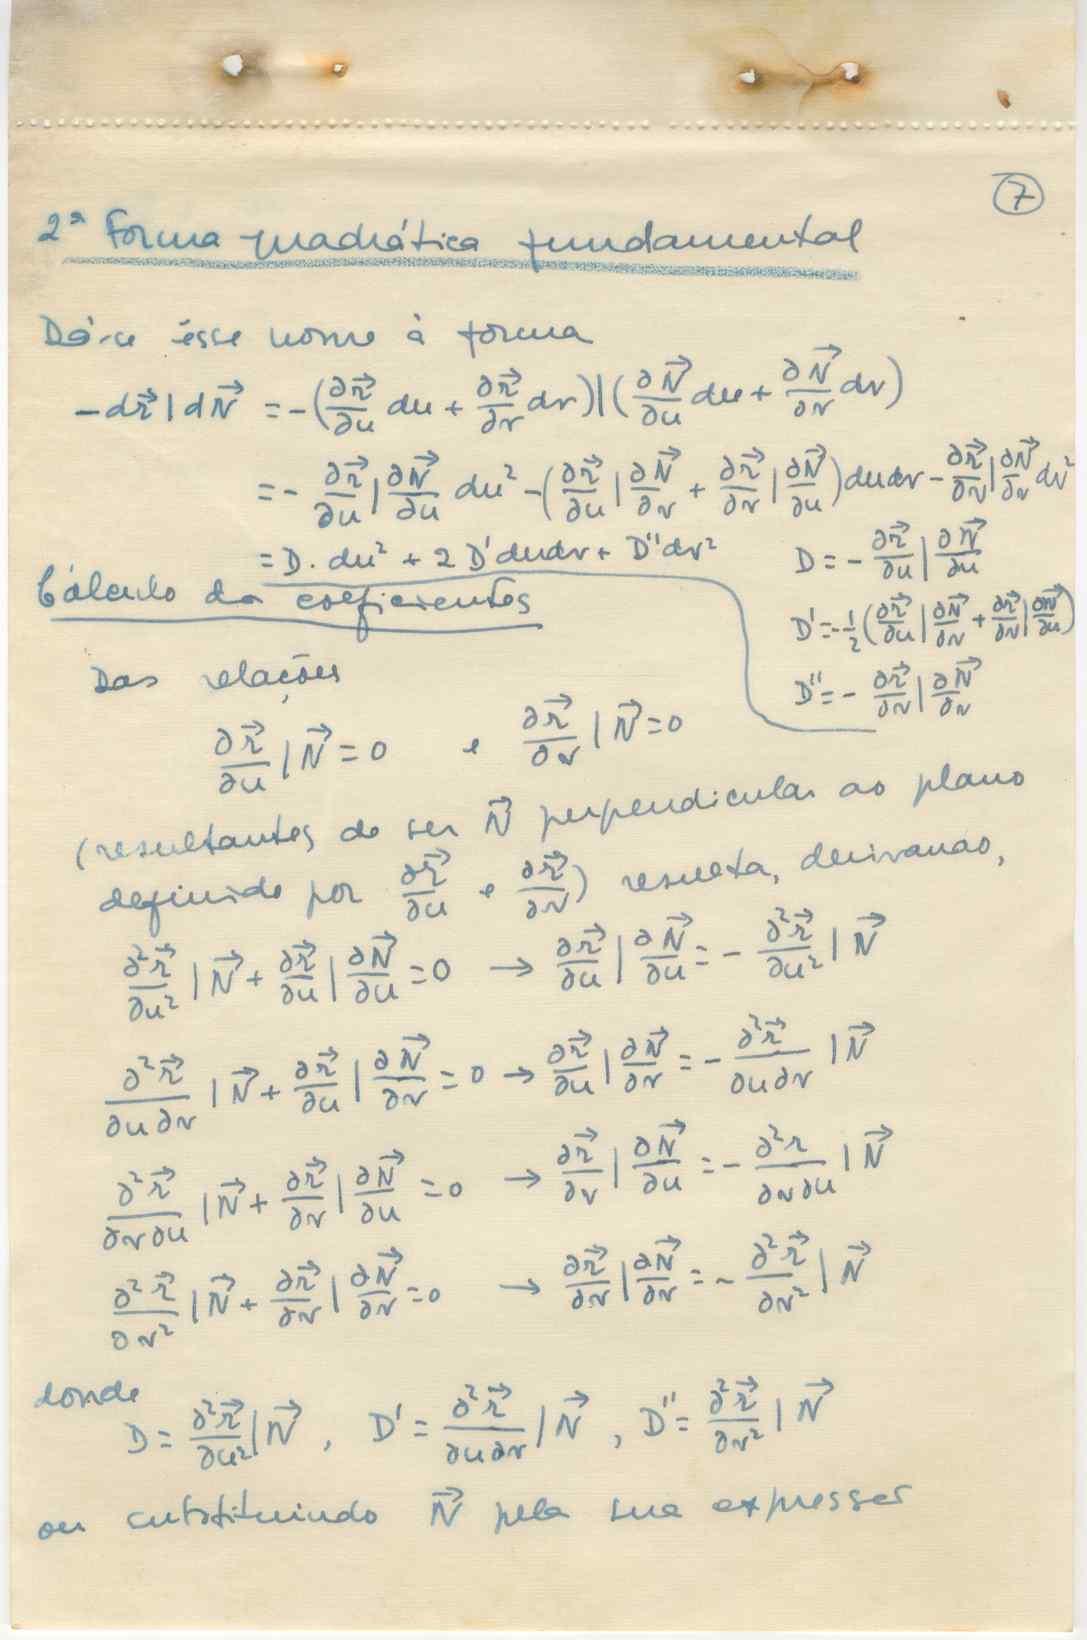 7
2ª Forma quadrática fundamental
Dá-se êsse nome à forma
$-d\vec{r}|d\vec{N} = -\left(\frac{\partial\vec{r}}{\partial u}du + \frac{\partial\vec{r}}{\partial v}dv\right)|\left(\frac{\partial\vec{N}}{\partial u}du + \frac{\partial\vec{N}}{\partial v}dv\right)$
$= -\frac{\partial\vec{r}}{\partial u}|\frac{\partial\vec{N}}{\partial u}du^2 - \left(\frac{\partial\vec{r}}{\partial u}|\frac{\partial\vec{N}}{\partial v} + \frac{\partial\vec{r}}{\partial v}|\frac{\partial\vec{N}}{\partial u}\right)dudv - \frac{\partial\vec{r}}{\partial v}|\frac{\partial\vec{N}}{\partial v}dv^2$
$= D.du^2 + 2D'dudv + D''dv^2$
$D = -\frac{\partial\vec{r}}{\partial u}|\frac{\partial\vec{N}}{\partial u}$
$D' = -\frac{1}{2}\left(\frac{\partial\vec{r}}{\partial u}|\frac{\partial\vec{N}}{\partial v} + \frac{\partial\vec{r}}{\partial v}|\frac{\partial\vec{N}}{\partial u}\right)$
$D'' = -\frac{\partial\vec{r}}{\partial v}|\frac{\partial\vec{N}}{\partial v}$
Cálculo dos coeficientes
Das relações
$\frac{\partial\vec{r}}{\partial u}|\vec{N} = 0$ e $\frac{\partial\vec{r}}{\partial v}|\vec{N} = 0$
(resultantes de ser $\vec{N}$ perpendicular ao plano
definido por $\frac{\partial\vec{r}}{\partial u}$ e $\frac{\partial\vec{r}}{\partial v}$) resulta, derivando,
$\frac{\partial^2\vec{r}}{\partial u^2}|\vec{N} + \frac{\partial\vec{r}}{\partial u}|\frac{\partial\vec{N}}{\partial u} = 0 \to \frac{\partial\vec{r}}{\partial u}|\frac{\partial\vec{N}}{\partial u} = -\frac{\partial^2\vec{r}}{\partial u^2}|\vec{N}$
$\frac{\partial^2\vec{r}}{\partial u\partial v}|\vec{N} + \frac{\partial\vec{r}}{\partial u}|\frac{\partial\vec{N}}{\partial v} = 0 \to \frac{\partial\vec{r}}{\partial u}|\frac{\partial\vec{N}}{\partial v} = -\frac{\partial^2\vec{r}}{\partial u\partial v}|\vec{N}$
$\frac{\partial^2\vec{r}}{\partial v\partial u}|\vec{N} + \frac{\partial\vec{r}}{\partial v}|\frac{\partial\vec{N}}{\partial u} = 0 \to \frac{\partial\vec{r}}{\partial v}|\frac{\partial\vec{N}}{\partial u} = -\frac{\partial^2 r}{\partial v\partial u}|\vec{N}$
$\frac{\partial^2\vec{r}}{\partial v^2}|\vec{N} + \frac{\partial\vec{r}}{\partial v}|\frac{\partial\vec{N}}{\partial v} = 0 \to \frac{\partial\vec{r}}{\partial v}|\frac{\partial\vec{N}}{\partial v} = -\frac{\partial^2\vec{r}}{\partial v^2}|\vec{N}$
donde
$D = \frac{\partial^2\vec{r}}{\partial u^2}|\vec{N}$, $D' = \frac{\partial^2\vec{r}}{\partial u\partial v}|\vec{N}$, $D'' = \frac{\partial^2\vec{r}}{\partial v^2}|\vec{N}$
ou substituindo $\vec{N}$ pela sua expressão